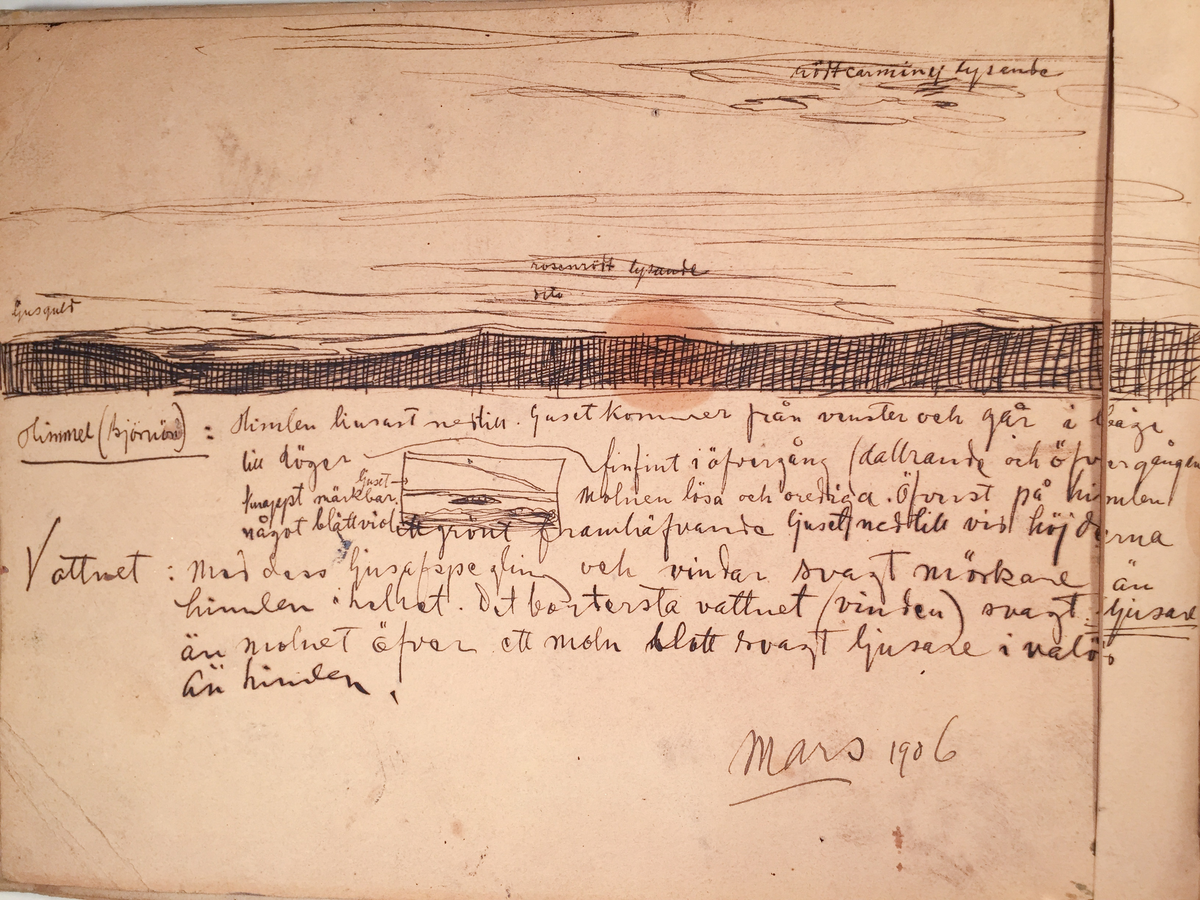 rödtcarminy lysande
rosenrödt lysande
dito
ljusguld
Himmel (Björnön): Himlen ljusast nedtill. Ljuset kommer från venster och går i båge
till höger finfint i öfvergång (dallrande och öfvergången
Ljuset
knappst märkbar Molnen lösa och orediga. Öfverst på himlen
något blåttviolettgrönt framhäfvande ljuset nedtill vid höjderna
Vattnet: med dess ljusafspegling och vindar svagt mörkare än
himlen i helhet. Det bortersta vattnet (vinden) svagt ljusare
än molnet öfver ett moln blott svagt ljusare i valör
än himlen.
Mars 1906